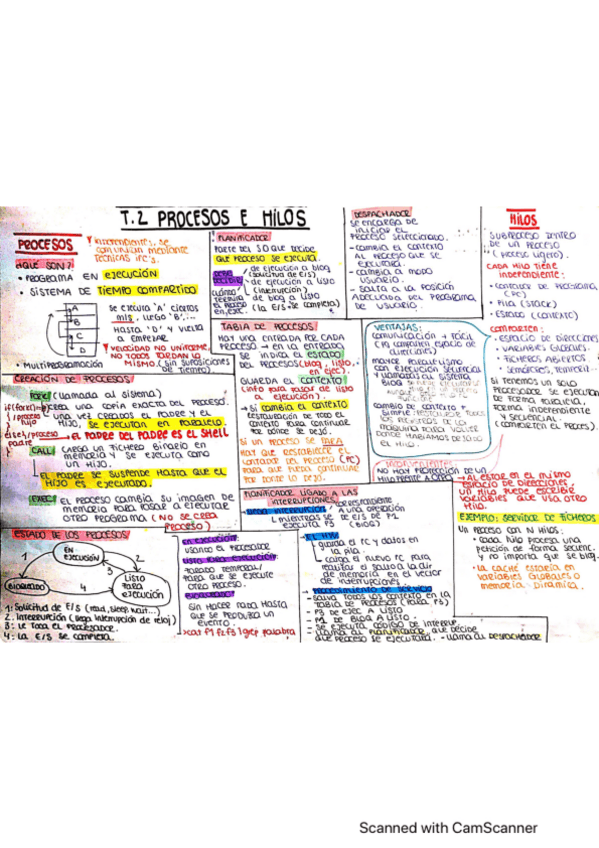 T.2 PROCESOS E HILOS
PROCESOS
¿QUÉ SON?
• PROGRAMA EN EJECUCIÓN
• SISTEMA DE TIEMPO COMPARTIDO
SE EJECUTA 'A' CIERTOS
HASTA 'D' Y VUELTA
A EMPEZAR
A
B
C
D
VELOCIDAD NO UNIFORME,
NO TODOS TARDAN LO
MISMO. (SIN SUPOSICIONES
DE TIEMPO)
• MULTIPROGRAMACIÓN
CREACIÓN DE PROCESOS
FORK (llamada al sistema)
CREA UNA COPIA EXACTA DEL PROCESO.
UNA VEZ CREADOS EL PADRE Y EL
HIJO, SE EJECUTAN EN PARALELO.
EL PADRE DEL PADRE ES EL SHELL
CALL: CARGA UN FICHERO BINARIO EN
MEMORIA Y SE EJECUTA COMO
UN HIJO.
EL PADRE SE SUSPENDE HASTA QUE EL
HIJO ES EJECUTADO.
EXEC: EL PROCESO CAMBIA SU IMAGEN DE
MEMORIA PARA PASAR A EJECUTAR
OTRO PROGRAMA (NO SE CREA
PROCESO)
ESTADO DE LOS PROCESOS
EN
EJECUCIÓN
BLOQUEADO
LISTO
PARA
EJECUCIÓN
1
2
3
4
1: Solicitud de E/S (read, sleep, wait...)
2: Interrupción (llega interrupción de reloj)
3: Le toca el procesador
4: La E/S se completa
EN EJECUCIÓN:
USANDO EL PROCESADOR
PARADO TEMPORAL/
PARA QUE SE EJECUTE
OTRO PROCESO.
SIN HACER NADA HASTA
QUE SE PRODUZCA UN
EVENTO.
>cat f1 f2 f3 | grep palabra
PLANIFICADOR
PARTE DEL SO QUE DECIDE
QUÉ PROCESO SE EJECUTA.
de ejecución a bloq
(solicitud de E/S)
de ejecución a listo
(interrupción)
de bloq a listo
(la E/S se completa)
TABLA DE PROCESOS
HAY UNA ENTRADA POR CADA
PROCESO → EN LA ENTRADA
SE INDICA EL ESTADO
DEL PROCESO (BLOQ, LISTO,
EN EJEC)
GUARDA EL CONTEXTO
(info para pasar de listo
a ejecución).
→ SI CAMBIA EL CONTEXTO
RESTAURACIÓN DE TODO EL
CONTEXTO PARA CONTINUAR
POR DONDE SE DEJÓ.
SI UN PROCESO SE PARA
HAY QUE RESTABLECER EL
CONTADOR DEL PROCESO (PC)
PARA QUE PUEDA CONTINUAR
POR DONDE LO DEJÓ.
PLANIFICADOR LIGADO A LAS
INTERRUPCIONES
A UNA OPERACIÓN
DE E/S DE P1
EJECUTA P3 (BLOQ)
DESPACHADOR
SE ENCARGA DE
INICIAR EL
PROCESO SELECCIONADO.
- CAMBIA EL CONTEXTO
AL PROCESO QUE SE
EJECUTARÁ.
- CAMBIA A MODO
USUARIO.
- SALTA A LA POSICIÓN
ADECUADA DEL PROGRAMA
DE USUARIO.
VENTAJAS:
COMUNICACIÓN + FÁCIL
(YA COMPARTEN ESPACIO DE
DIRECCIONES)
MAYOR PARALELISMO
CON EJECUCIÓN SECUENCIAL
Y LLAMADAS AL SISTEMA
CAMBIO DE CONTEXTO +
SIMPLE:
INCONVENIENTES
NO HAY PROTECCIÓN DE UN
HILO FRENTE A OTRO
→ AL ESTAR EN EL MISMO
ESPACIO DE DIRECCIONES,
UN HILO PUEDE ESCRIBIR
VARIABLES QUE USA OTRO
HILO.
EL HW
guarda el PC y datos en
la pila.
carga el nuevo PC para
realizar el salto a la dir
de memoria en el vector
de interrupciones.
PROCEDIMIENTO DE SERVICIO
- SALVA TODOS LOS CONTEXTO EN LA
TABLA DE PROCESOS (PARA P3)
- P3 DE EJEC A LISTO
- P1 DE BLOQ A LISTO
- LLAMA AL PLANIFICADOR, QUE DECIDE
QUÉ PROCESO SE EJECUTARÁ. - LLAMA AL DESPACHADOR
HILOS
SUBPROCESO DENTRO
DE UN PROCESO
(PROCESO LIGERO).
CADA HILO TIENE
INDEPENDIENTE:
• CONTADOR DE PROGRAMA
(PC)
• PILA (STACK)
• ESTADO (CONTEXTO)
COMPARTEN:
• ESPACIO DE DIRECCIONES
• VARIABLES GLOBALES.
• FICHEROS ABIERTOS.
SI TENEMOS UN SOLO
PROCESADOR SE EJECUTAN
DE FORMA PARALELA,
FORMA INDEPENDIENTE
Y SECUENCIAL.
(COMPARTEN EL PROCES).
EJEMPLO: SERVIDOR DE FICHEROS
UN PROCESO CON N HILOS:
• CADA HILO PROCESA UNA
PETICIÓN DE FORMA SECUENC.
Y NO IMPORTA QUE SE BLOQ.
• LA CACHÉ ESTARÍA EN
VARIABLES GLOBALES O
MEMORIA DINÁMICA.
Scanned with CamScanner